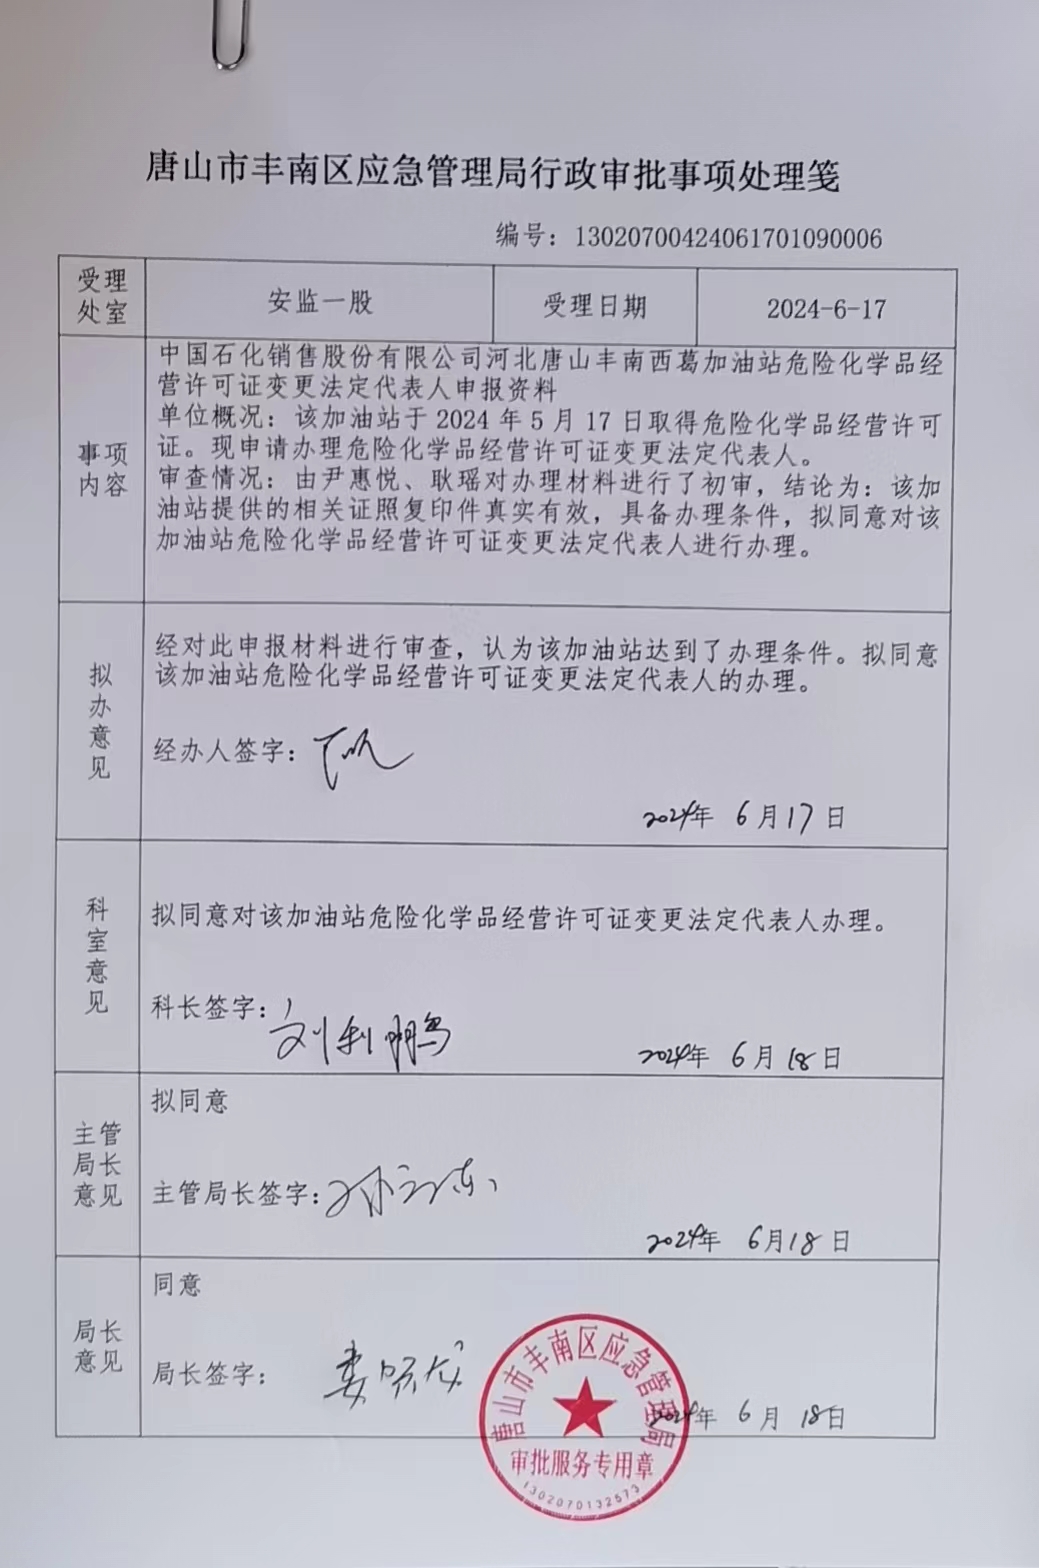 唐山市丰南区应急管理局行政审批事项处理笺
编号：13020700424061701090006
受理处室
安监一股
受理日期
2024-6-17
事项内容
中国石化销售股份有限公司河北唐山丰南西葛加油站危险化学品经
营许可证变更法定代表人申报资料
单位概况：该加油站于 2024 年 5 月 17 日取得危险化学品经营许可
证。现申请办理危险化学品经营许可证变更法定代表人。
审查情况：由尹惠悦、耿瑶对办理材料进行了初审，结论为：该加
油站提供的相关证照复印件真实有效，具备办理条件，拟同意对该
加油站危险化学品经营许可证变更法定代表人进行办理。
拟办意见
经对此申报材料进行审查，认为该加油站达到了办理条件。拟同意
该加油站危险化学品经营许可证变更法定代表人的办理。
经办人签字：
2024年 6月17日
科室意见
拟同意对该加油站危险化学品经营许可证变更法定代表人办理。
科长签字：刘利鹏
2024年 6月18日
主管局长意见
拟同意
主管局长签字：
2024年 6月18日
局长意见
同意
局长签字：
2024年 6月 18日
唐山市丰南区应急管理局
审批服务专用章
1302070132573